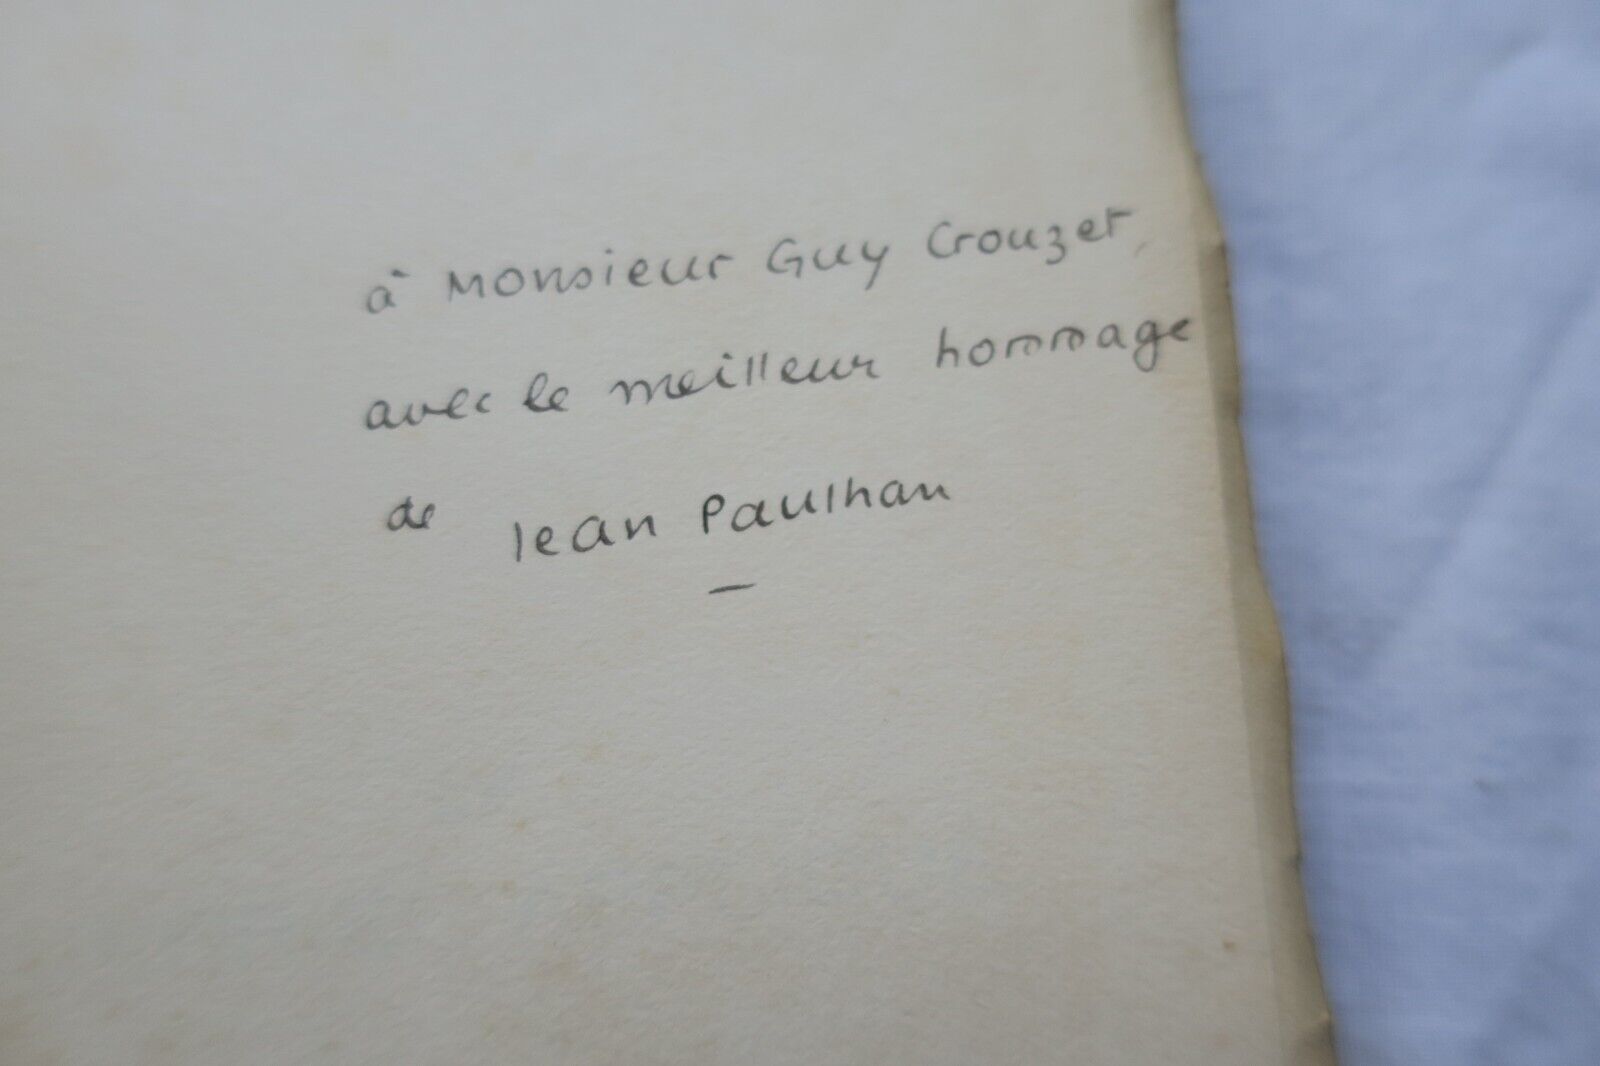 à Monsieur Guy Crouzet,
avec le meilleur hommage
de Jean Paulhan